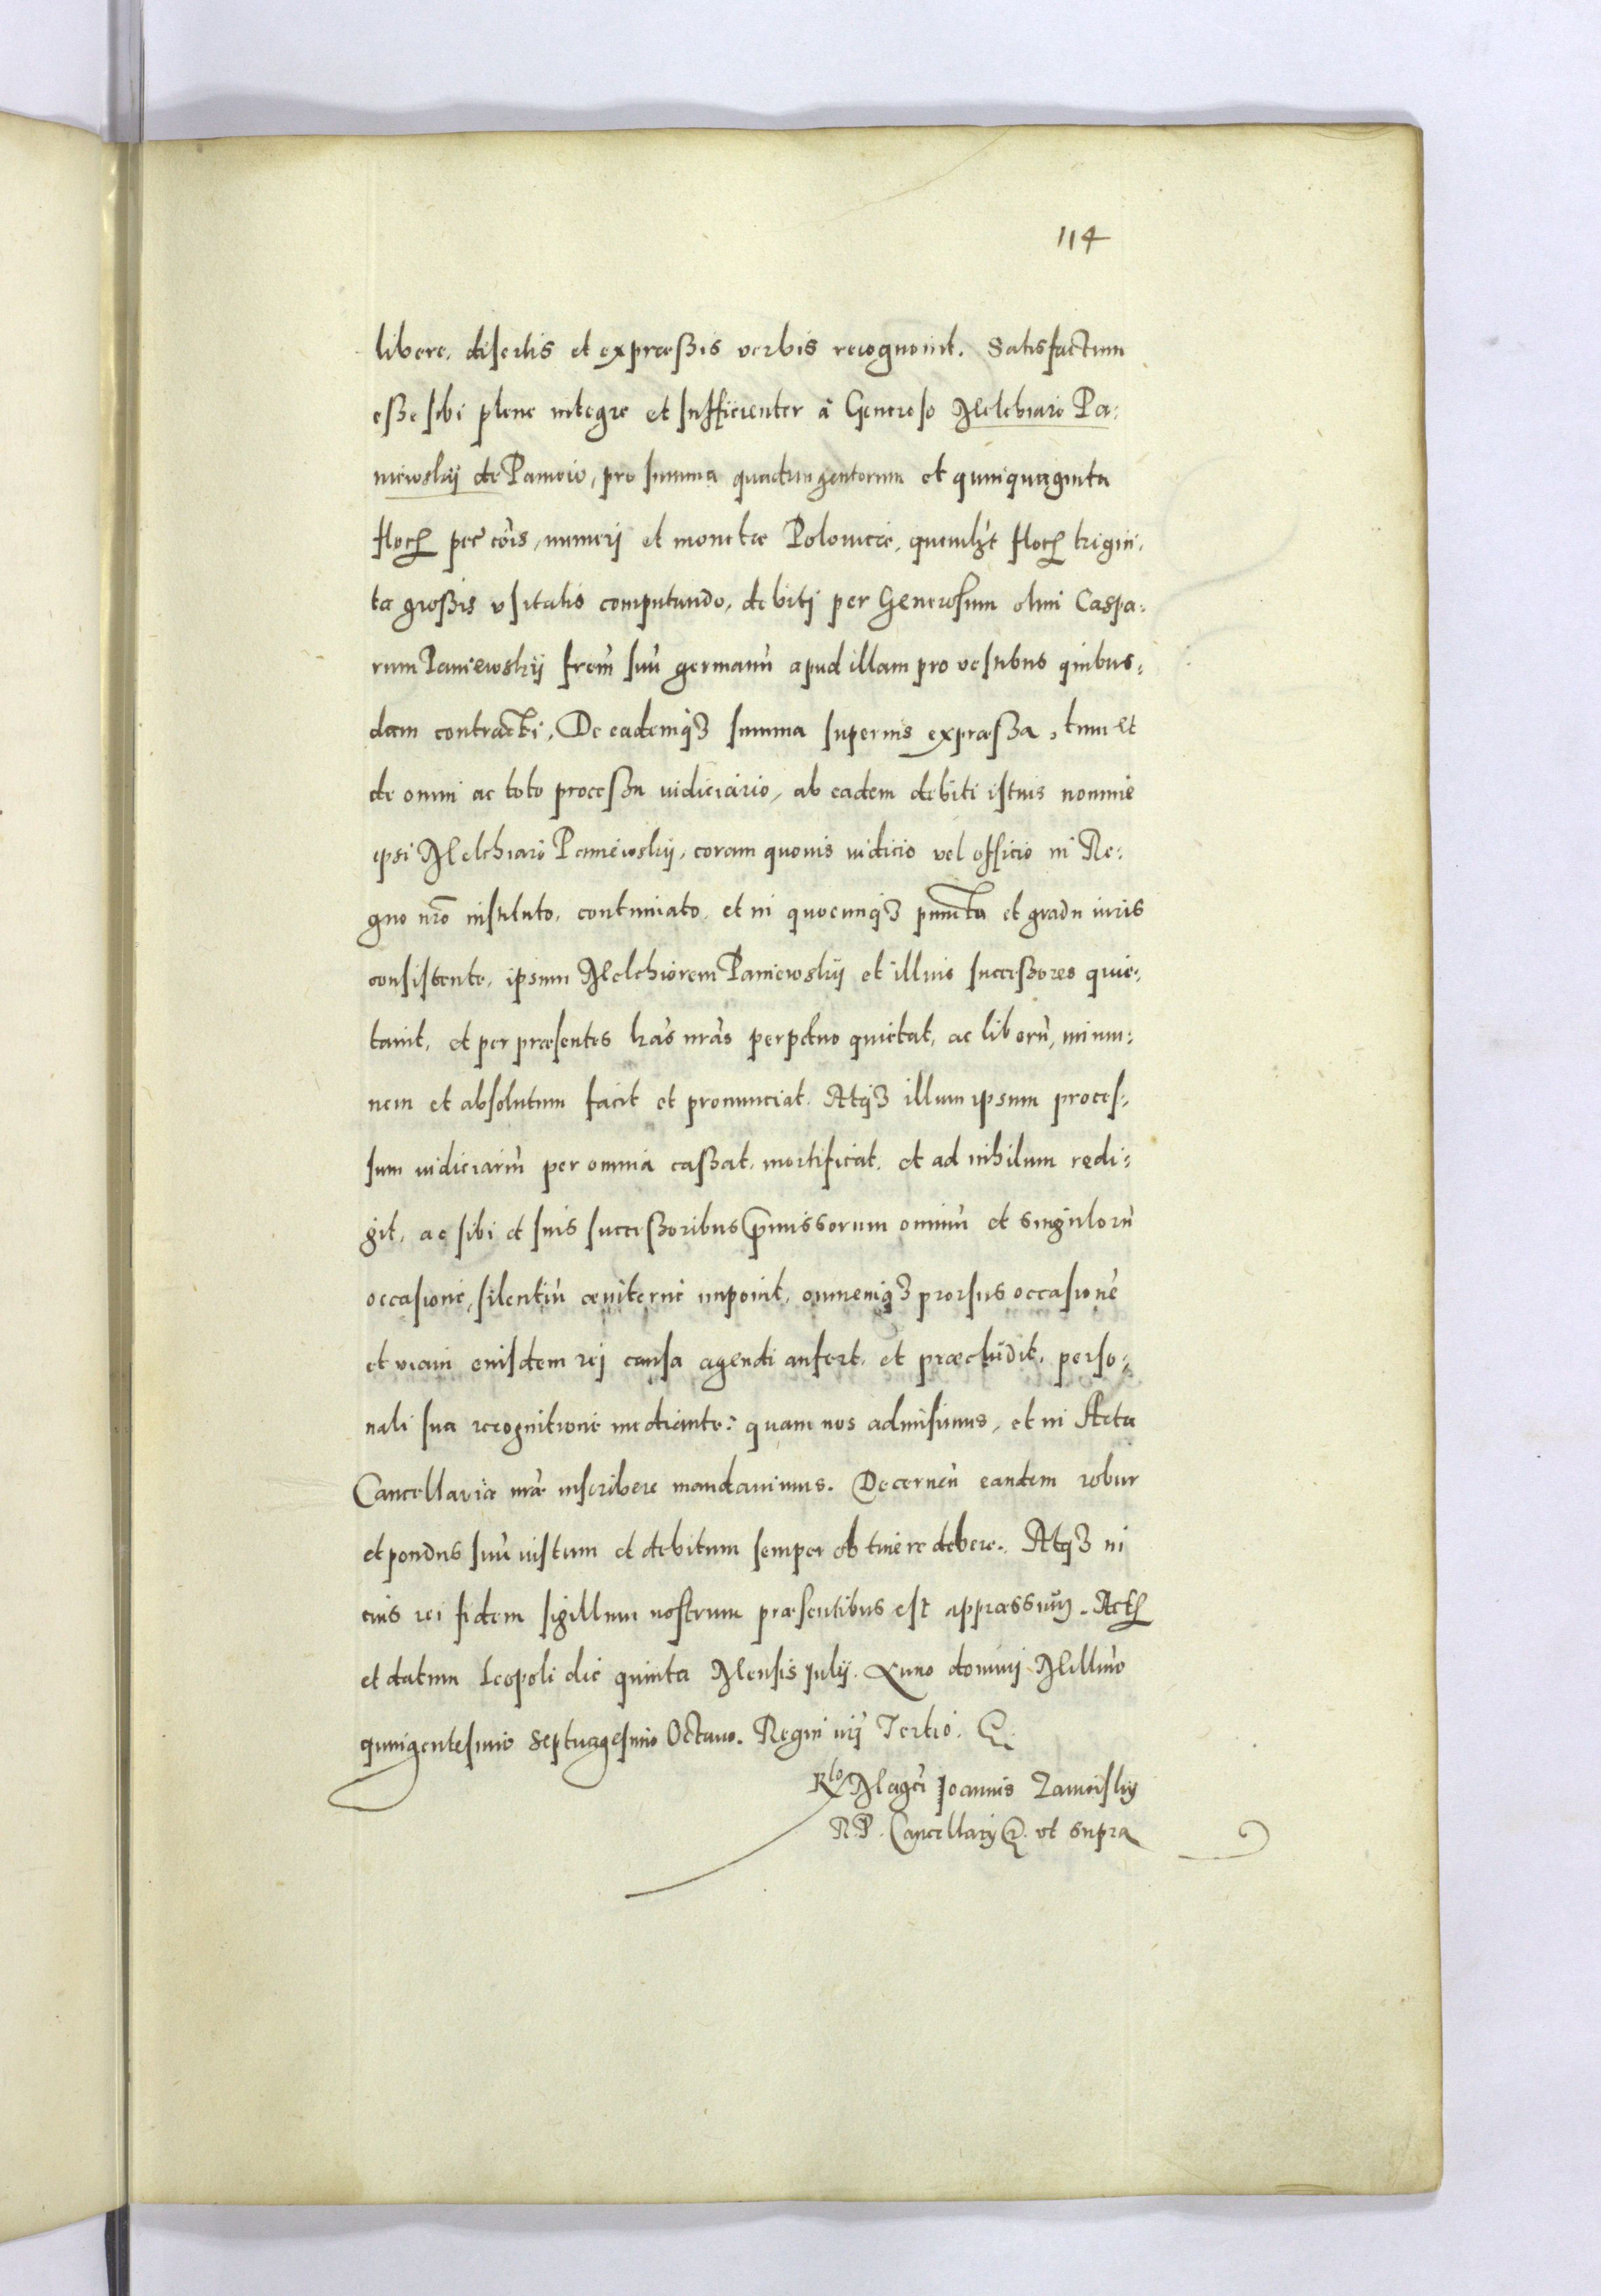 114
libere, disertis et expræßis verbis recognovit. Satisfactum
eße sibi plene integre et sufficienter à Generoso Melchiaro Pa:
niewskij de Paniow, pro summa quadringentorum et quinquaginta
floc₎ pec̃ cõis, numeri et monetæ Polonicæ, quemlt̃ floc₎ trigin:
ta großis usitatis computando, debitj per Generosum olim Caspa:
rum Paniewskij frem̃ suũ germanũ apud illam pro vestibus quibus:
dam contracti, De eademq₃ summa superius expræßa, tum et
de omni ac toto proceßu iudiciario, ab eadem debiti istius nomine
ipsi Melchiari Paniewskij, coram quovis iudicio vel officio in Re:
gno nr̃o instituto, continuato, et in quocunq₃ puncto et gradu iuris
consistente, ipsum Melchiorem Paniewskij et illius succeßores quie:
tavit, et per præsentes hãs nrãs perpetuo quietat, ac liberũ, immu:
nem et absolutum facit et pronunciat. Atq₃ illum ipsum proces:
sum iudiciariũ per omnia caßat, mortificat, et ad nihilum redi:
git, ac sibi et suis succeßoribus p̃missorum omniũ et singulorũ
occasione, silentiũ æviterne imponit, omnemq₃ prorsus occasionẽ
et viam eiusdem rej causa agendi aufert, et præcludit, perso:
nali sua recognitione mediante: quam nos admisimus, et in Acta
Cancellariæ nræ inscribere mandavimus. Decernen̄ eandem robur
et pondus suũ iustum et debitum semper obtinere debere. Atq₃ in
cuius rei fidem sigillum nostrum præsentibus est appræssum. Act₎
et datum Leopoli die quinta Mensis Julij. Anno dominj Millmo
quingentesimo Septuagesimo Octavo. Regni nr̃i Tertio. &.
Rlo Magci Joannis Zamoiskij
R. P. Cancellarij &. ut supra